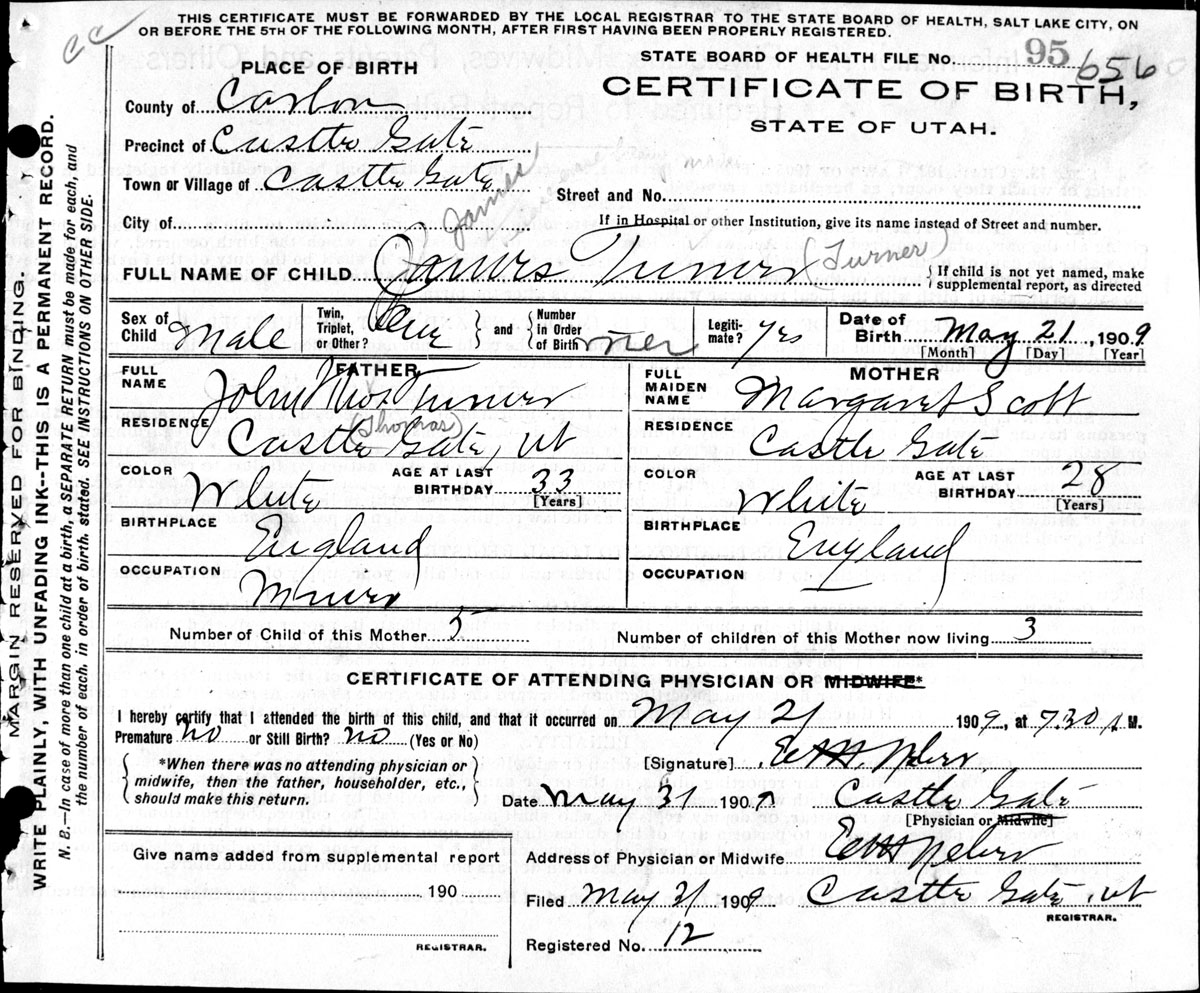 THIS CERTIFICATE MUST BE FORWARDED BY THE LOCAL REGISTRAR TO THE STATE BOARD OF HEALTH, SALT LAKE CITY, ON
OR BEFORE THE 5TH OF THE FOLLOWING MONTH, AFTER FIRST HAVING BEEN PROPERLY REGISTERED.
CC
STATE BOARD OF HEALTH FILE No. 95 656
PLACE OF BIRTH
CERTIFICATE OF BIRTH,
STATE OF UTAH.
County of Carbon
Precinct of Castle Gate
Town or Village of Castle Gate
Street and No.
City of
If in Hospital or other Institution, give its name instead of Street and number.
James
FULL NAME OF CHILD James Turner (Turner)
{ If child is not yet named, make
supplemental report, as directed
Sex of Child Male
Twin, Triplet, or Other?
{ and }
Number in Order of Birth
Legitimate? yes
Date of Birth May 21, 1909
[Month] [Day] [Year]
FATHER
FULL NAME John Thos Turner
(Thomas)
RESIDENCE Castle Gate, Ut
COLOR White
AGE AT LAST BIRTHDAY 33
[Years]
BIRTHPLACE England
OCCUPATION Miner
MOTHER
FULL MAIDEN NAME Margaret Scott
RESIDENCE Castle Gate
COLOR White
AGE AT LAST BIRTHDAY 28
[Years]
BIRTHPLACE England
OCCUPATION
Number of Child of this Mother 5
Number of children of this Mother now living 3
CERTIFICATE OF ATTENDING PHYSICIAN OR MIDWIFE*
I hereby certify that I attended the birth of this child, and that it occurred on May 21 1909, at 7.30 M.
Premature no or Still Birth? no (Yes or No)
{ *When there was no attending physician or
midwife, then the father, householder, etc.,
should make this return. }
[Signature]
Date May 31 1909 Castle Gate
[Physician or Midwife]
Give name added from supplemental report
190
REGISTRAR.
Address of Physician or Midwife
Filed May 31 1909 Castle Gate, Ut
REGISTRAR.
Registered No. 12
MARGIN RESERVED FOR BINDING.
WRITE PLAINLY, WITH UNFADING INK--THIS IS A PERMANENT RECORD.
N. B.—In case of more than one child at a birth, a SEPARATE RETURN must be made for each, and
the number of each, in order of birth, stated. SEE INSTRUCTIONS ON OTHER SIDE.